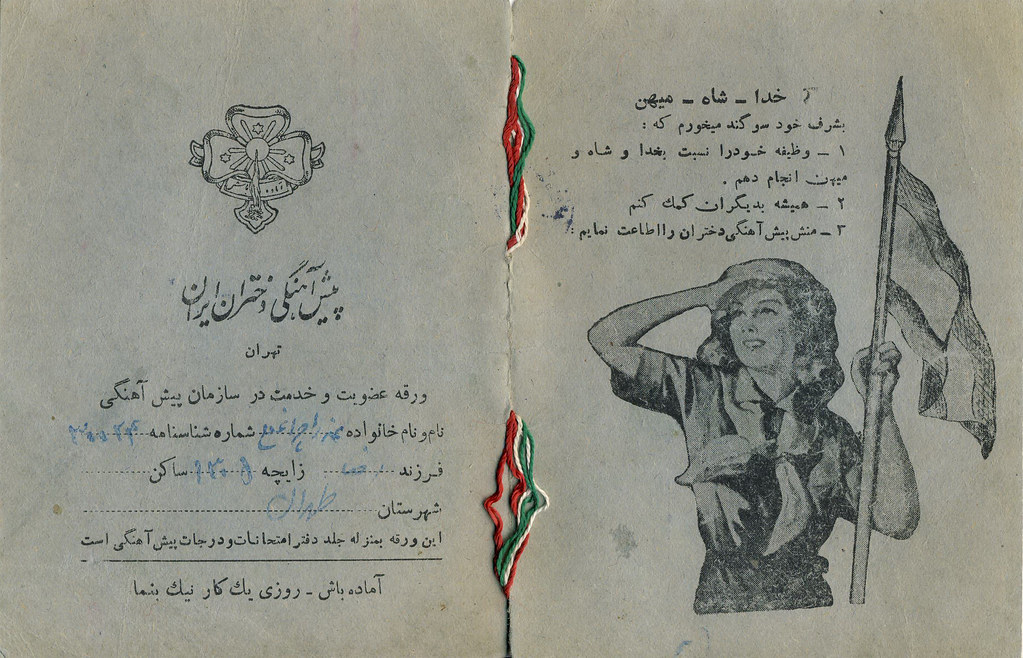 خدا ـ شاه ـ میهن
بشرف خود سوگند میخورم که :
۱ ـ وظیفه خودرا نسبت بخدا و شاه و
میهن انجام دهم .
۲ ـ همیشه بدیگران کمك کنم
۳ ـ منش پیش آهنگی دختران را اطاعت نمایم :
پیش آهنگی دختران ایران
تهران
ورقه عضویت و خدمت در سازمان پیش آهنگی
نام و نام خانوادہ شماره شناسنامه
فرزند زایچه ساکن
شهرستان طهران
این ورقه بمنزله جلد دفتر امتحانات و درجات پیش آهنگی است
آماده باش ـ روزی یك کار نیك بنما